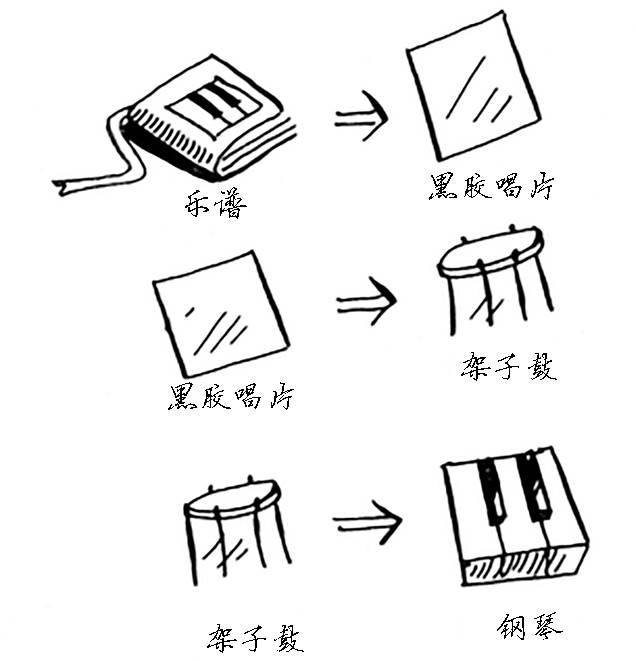 乐谱
黑胶唱片
黑胶唱片
架子鼓
架子鼓
钢琴